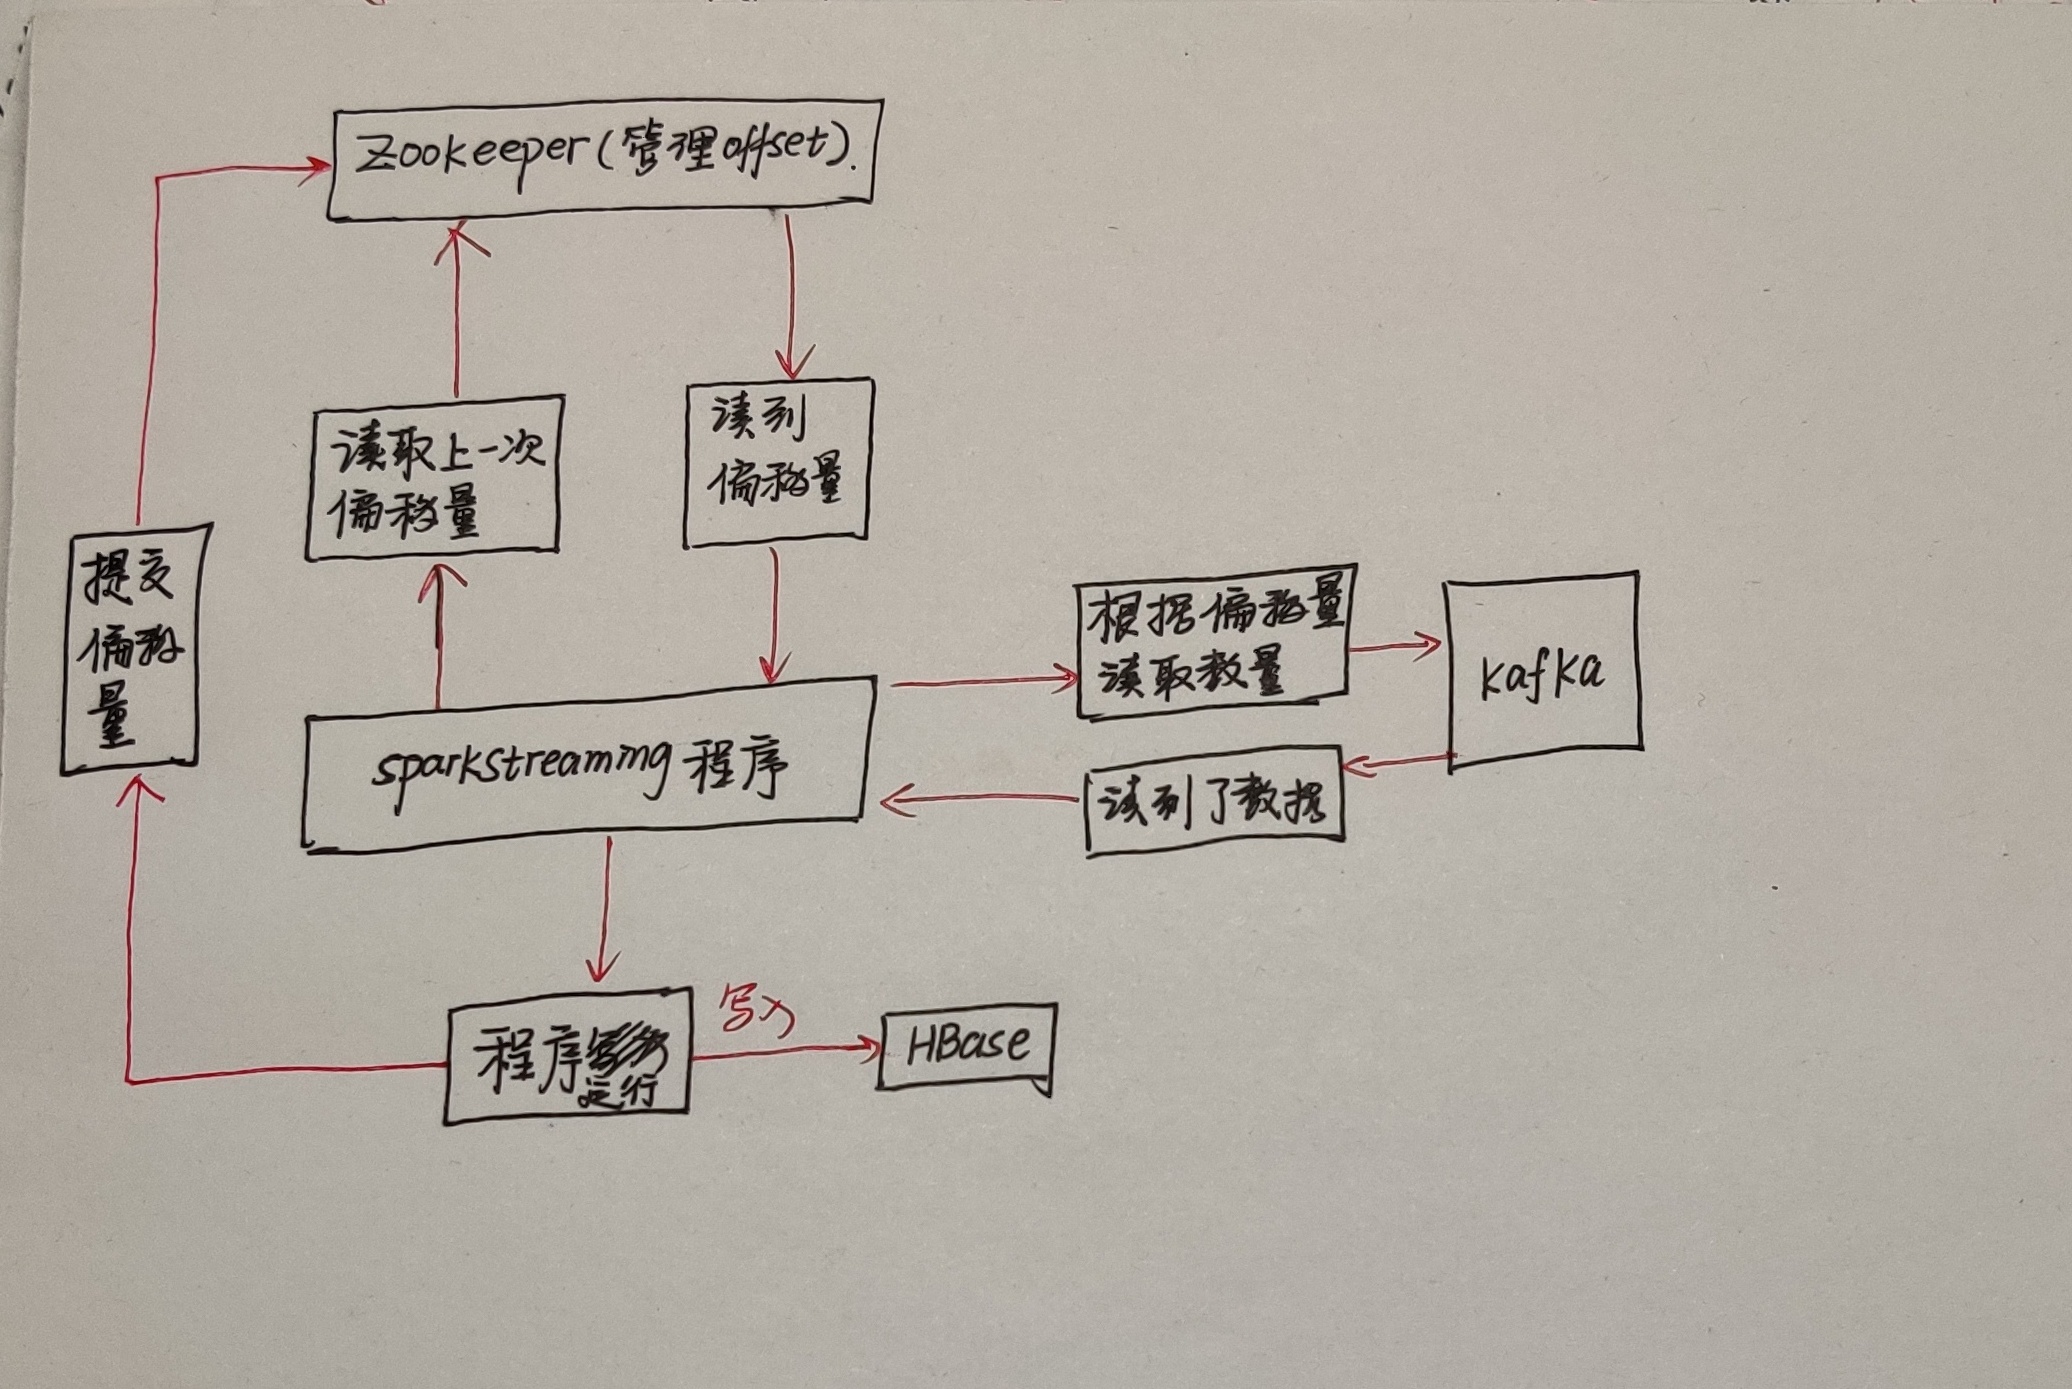 Zookeeper(管理offset).
读取上一次
偏移量
读到
偏移量
提交
偏移
量
根据偏移量
读取数量
kafka
sparkstreaming程序
读到了数据
程序
运行
写入
HBase